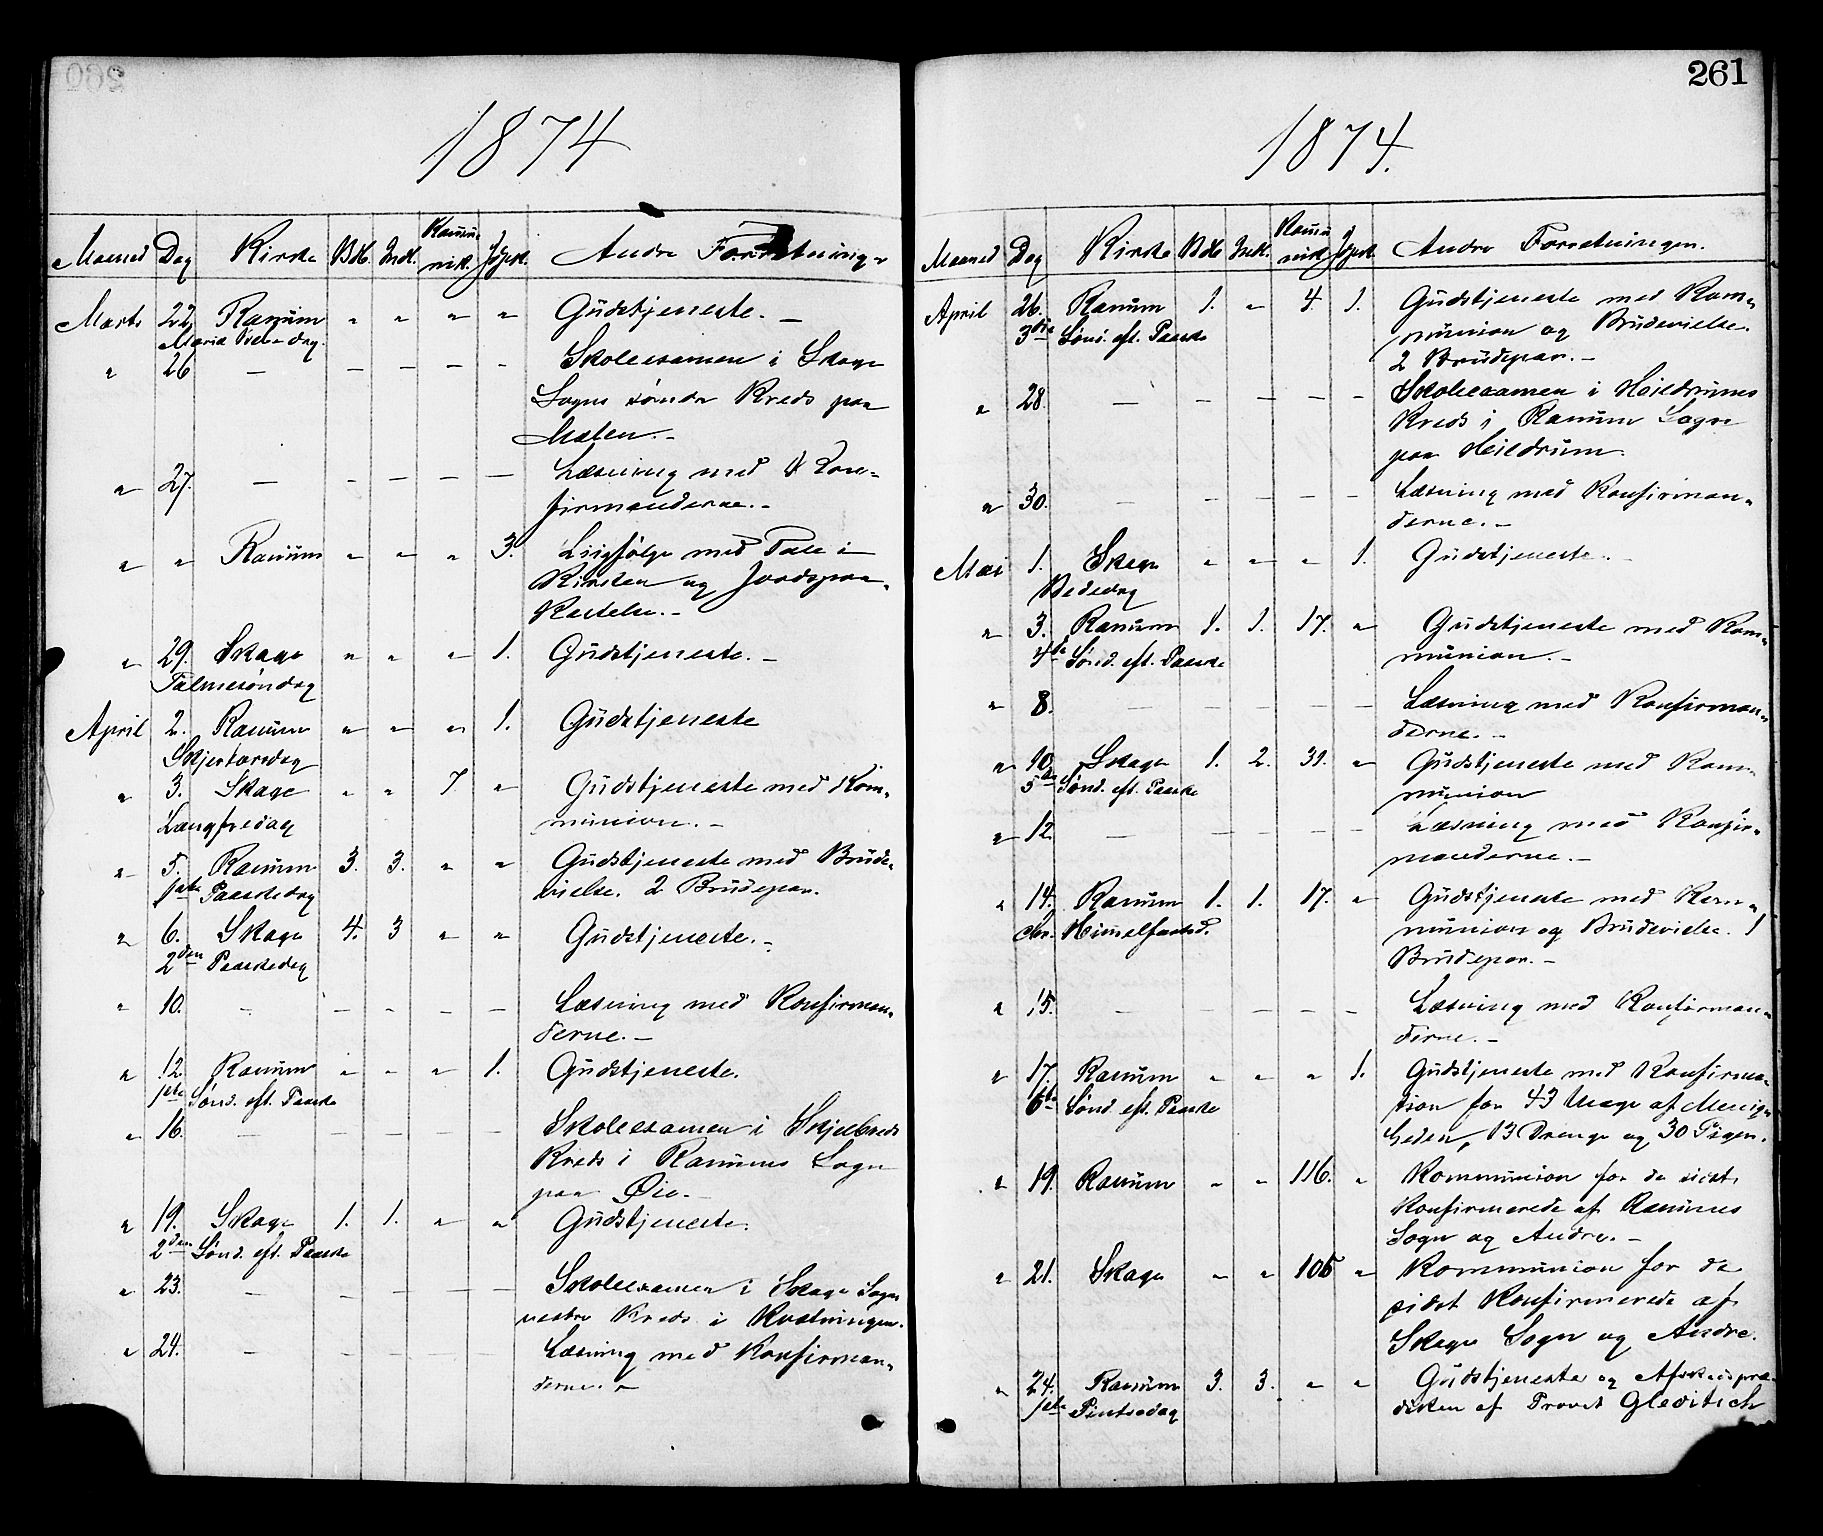 1874
Maaned Dag Kirke Bdb. Indk. Kommu- Jdpk. Andre Forretninger
nik.
Marts 22 Ranum " " " " Gudstjeneste. –
" 26 – – – – – Skoleexamen i Skage
Sogns søndre Kreds paa
" 27. – – – – – Læsning med Kon-
firmanderne. –
" " Ranum " " " 3. Liigfølge med Tale i
Kirken og Jordspaa-
kastelse. –
" 29. Skage " " " 1. Gudstjeneste. –
Palmesøndag
April 2. Ranum " " " 1. Gudstjeneste
Skjertorsdag
" 3. Skage " " 7 " Gudstjeneste med Kom-
Langfredag munion. –
" 5. Ranum 3. 3. " " Gudstjeneste med Brude-
1ste Paaskedag vielse. 2 Brudepar.
" 6. Skage 4. 3 " " Gudstjeneste. –
2den Paaskedag
" 10. – – – – – Læsning med Konfirman-
derne. –
" 12. Ranum " " " 1. Gudstjeneste.
1ste Sønd. eft. Paaske
" 16. – – – – – Skoleexamen i Skjelbreds
Kreds i Ranums Sogn
paa Øie. –
" 19. Skage 1. 1. " " Gudstjeneste.
2den Sønd. eft. Paaske
" 23. – – – – – Skoleexamen i Skage Sogns
vestre Kreds i
" 24. – – – – – Læsning med Konfirman-
derne. –
261
1874.
Maaned Dag Kirke Bdb Indk. Kommu- Jdpk. Andre Forretninger.
nik
April 26. Ranum 1. " 4. 1. Gudstjeneste med Kom-
3die Sønd. eft. Paaske munion og Brudevielse.
2 Brudepar. –
" 28. – – – – – Skoleexamen i Heildrums
Kreds i Ranum Sogn
paa Heildrum.
" 30. – – – – – Læsning med Konfirman-
derne. –
Mai 1. Skage " " " 1. Gudstjeneste. –
Bededag
" 3. Ranum 1. 1. 17. " Gudstjeneste med Kom-
4de Sønd. eft. Paaske munion. –
" 8. – – – – – Læsning med Konfirman-
derne. –
" 10. Skage 1. 2. 31. " Gudstjeneste med Kom-
5te Sønd. eft. Paaske munion
" 12 – – – – – Læsning med Konfir-
manderne. –
" 14. Ranum 1. 1. 17. " Gudstjeneste med Kom-
Chr. Himelfartsd. munion og Brudevielse. 1
Brudepar. –
" 15. – – – – – Læsning med Konfirman-
derne. –
" 17. Ranum " " " 1. Gudstjeneste med Konfirma-
6te Sønd. eft. Paaske tion for 43 Unge af Menig-
heden, 13 Drenge og 30 Piger.
" 19. Ranum " " 116. " Kommunion for de sidst
Konfirmerede af Ranums
Sogn og Andre. –
" 21. Skage " " 105 " Kommunion for de
sidst Konfirmerede af
Skage Sogn og Andre.
" 24. Ranum 3. 3. " " Gudstjeneste og Afskedspræ-
1ste Pintsedag diken af Provst Gleditsch